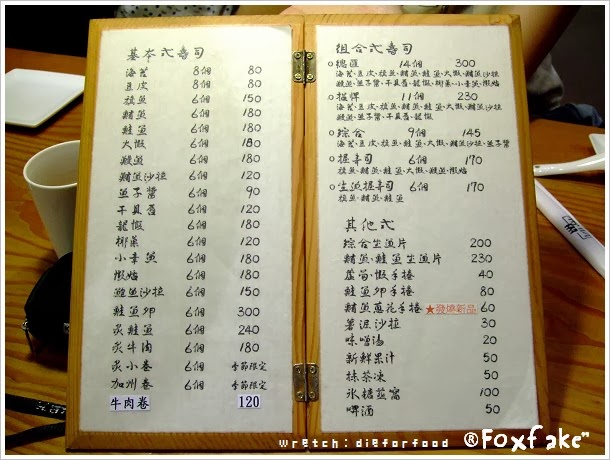 基本式壽司
海苔 8個 80
豆皮 8個 80
旗魚 6個 150
鮪魚 6個 180
鮭魚 6個 180
大蝦 6個 180
鰻魚 6個 180
鮪魚沙拉 6個 180
魚子醬 6個 90
干貝唇 6個 120
龍蝦 6個 120
椰菜 6個 120
小章魚 6個 180
蝦蛄 6個 180
鮑魚沙拉 6個 150
鮭魚卵 6個 300
炙鮭魚 6個 240
炙牛肉 6個 180
炙小卷 6個 季節限定
加州卷 6個 季節限定
牛肉卷 120
組合式壽司
總匯 14個 300
海苔、豆皮、旗魚、鮪魚、鮭魚、大蝦、鮪魚沙拉
鰻魚、魚子醬、干貝唇、龍蝦、椰菜、小章魚、蝦蛄
招牌 11個 230
海苔、豆皮、旗魚、鮪魚、鮭魚、大蝦、鮪魚沙拉
鰻魚、魚子醬、干貝唇、龍蝦
綜合 9個 145
海苔、豆皮、旗魚、鮭魚、大蝦、鮪魚沙拉、魚子醬
握壽司 6個 170
旗魚、鮪魚、鮭魚、大蝦、鰻魚、蝦蛄
生魚握壽司 6個 170
旗魚、鮪魚、鮭魚
其他式
綜合生魚片 200
鮪魚、鮭魚生魚片 230
蘆筍、蝦手捲 40
鮭魚卵手捲 80
鮪魚蔥花手捲 ★發燒新品 60
薯泥沙拉 30
味噌湯 20
新鮮果汁 50
抹茶凍 50
冰糖燕窩 100
啤酒 50
wretch:dieforfood ®Foxfake"